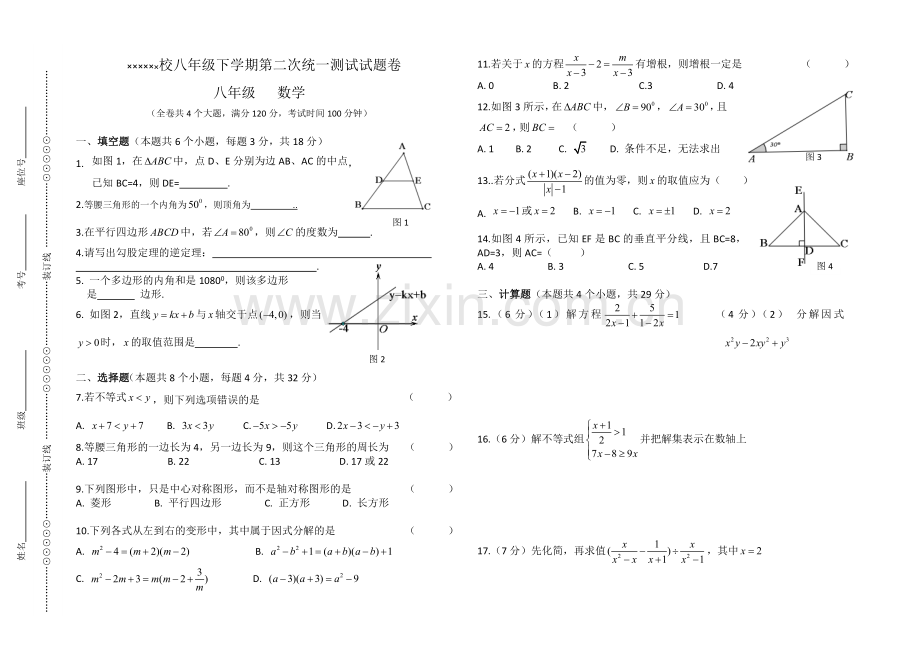 ××××××校八年级下学期第二次统一测试试题卷
八年级 数学
（全卷共4个大题，满分120分，考试时间100分钟）
一、填空题（本题共6个小题，每题3分，共18分）
1. 如图1，在△ABC中，点D、E分别为边AB、AC的中点，
已知BC=4，则DE=________.
2.等腰三角形的一个内角为50⁰，则顶角为________..
3.在平行四边形ABCD中，若∠A=80⁰，则∠C的度数为______.
4.请写出勾股定理的逆定理：________________
________________.
5. 一个多边形的内角和是1080⁰，则该多边形
是______ 边形.
6. 如图2，直线y=kx+b与x轴交于点(-4,0)，则当
y>0时，x的取值范围是________.
A
D
E
B
C
图1
y
y=kx+b
-4
O
x
图2
二、选择题（本题共8个小题，每题4分，共32分）
7.若不等式x<y，则下列选项错误的是 （ ）
A. x+7<y+7 B. 3x<3y C. -5x>-5y D. 2x-3<-y+3
8.等腰三角形的一边长为4，另一边长为9，则这个三角形的周长为 （ ）
A. 17 B. 22 C. 13 D. 17或22
9.下列图形中，只是中心对称图形，而不是轴对称图形的是 （ ）
A. 菱形 B. 平行四边形 C. 正方形 D. 长方形
10.下列各式从左到右的变形中，其中属于因式分解的是 （ ）
A. m²-4=(m+2)(m-2) B. a²-b²+1=(a+b)(a-b)+1
C. m²-2m+3=m(m-2+3/m) D. (a-3)(a+3)=a²-9
11.若关于x的方程x/(x-3)-2=m/(x-3)有增根，则增根一定是 （ ）
A. 0 B. 2 C.3 D. 4
12.如图3所示，在△ABC中，∠B=90⁰，∠A=30⁰，且
AC=2，则BC= （ ）
A. 1 B. 2 C. √3 D. 条件不足，无法求出
C
30°
A
B
图3
13..若分式(x+1)(x-2)/(|x|-1)的值为零，则x的取值应为（ ）
A. x=-1或x=2 B. x=-1 C. x=±1 D. x=2
14.如图4所示，已知EF是BC的垂直平分线，且BC=8，
AD=3，则AC=（ ）
A. 4 B. 3 C. 5 D.7
E
A
B
C
D
F
图4
三、计算题（本题共4个小题，共29分）
15.（6分）（1）解方程 2/(2x-1)+5/(1-2x)=1 （4分）（2） 分解因式
x²y-2xy²+y³
16.（6分）解不等式组{(x+1)/2>1 并把解集表示在数轴上
7x-8≥9x
17.（7分）先化简，再求值(x/(x²-x)-1/(x+1))÷x/(x²-1)，其中x=2
座位号
考号
班级
姓名
装订线
装订线
www.zixin.com.cn